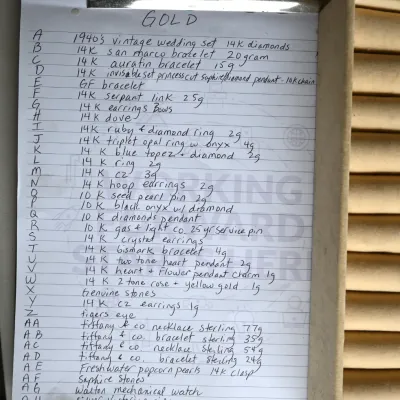 GOLD
A 1940's vintage wedding set 14K diamonds
B 14K san marco bracelet 20 gram
C 14K auratin bracelet 15g
D 14K invisible set princess cut saphire/diamond pendant - 10K chain
E GF bracelet
F 14K serpant link 25g
G 14K earrings Bows
H 14K dove
I 14K ruby & diamond ring 2g
J 14K triplet opal ring w onyx 4g
K 14K blue topez & diamond 2g
L 14K ring 2g
M 14K CZ 3g
N 14K hoop earrings 2g
O 10K seed pearl pin 2g
P 10K black onyx w/ diamond
Q 10K diamonds pendant
R 10K gas & light co. 25 yr service pin
S 14K crystal earrings
T 14K bismark bracelet 4g
U 14K two tone heart pendant 2g
V 14K heart & flower pendant charm 1g
W 14K 2 tone rose & yellow gold 1g
X Genuine stones
Y 14K CZ earrings 1g
Z tigers eye
AA tiffany & co. necklace sterling 77g
AB tiffany & co. bracelet sterling 35g
AC tiffany & co. necklace sterling 54g
AD tiffany & co. bracelet sterling 24g
AE Freshwater popcorn pearls 14K clasp
AF Saphire Stones
AG Walton mechanical watch
AH